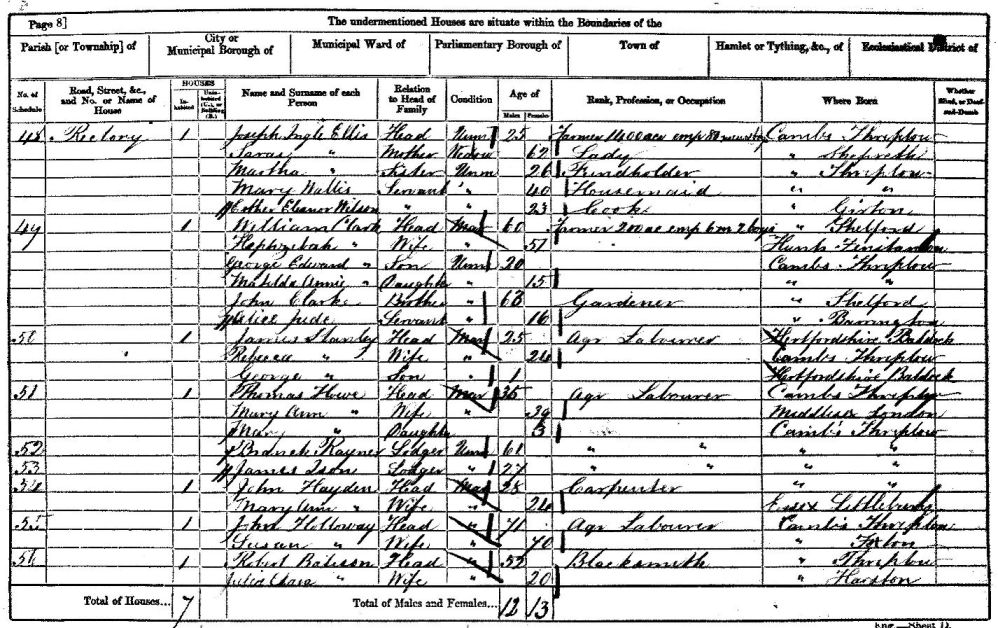 Page 8] The undermentioned Houses are situate within the Boundaries of the
Parish [or Township] of City or Municipal Borough of Municipal Ward of Parliamentary Borough of Town of Hamlet or Tything, &c., of Ecclesiastical District of
No. of Schedule Road, Street, &c., and No. or Name of House HOUSES Inhabited Uninhabited (U.), or Building (B.) Name and Surname of each Person Relation to Head of Family Condition Age of Males Females Rank, Profession, or Occupation Where Born Whether Blind, or Deaf-and-Dumb
48 Rectory 1 Joseph Ingle Ellis Head Unm 25 Farmer 1400 ace emp 80 men Cambs Thriplow
Sarah " Mother Widow 62 Lady " Shepreth
Martha " Sister Unm 26 Fundholder " Thriplow
Mary Wallis Servant " 40 Housemaid " "
Esther Eleanor Wilson " " 23 Cook " Girton
49 1 William Clark Head Mar 60 Farmer 200 ac emp 6 m 2 boys " Shelford
Hephzebah " Wife " 51 Hunts
George Edward " Son Unm 20 Cambs Thriplow
Matilda Annie " Daughter " 15 " "
John Clark Brother " 63 Gardener " Shelford
Alice Jude Servant " 16 " Barrington
50 1 James Stanley Head Mar 25 Agr Labourer Hertfordshire Baldock
Rebecca " Wife " 24 Cambs Thriplow
George " Son " 1 Hertfordshire Baldock
51 1 Thomas Howe Head Mar 35 Agr Labourer Cambs Thriplow
Mary Ann " Wife " 39 Middlesex London
Mary " Daughter 3 Cambs Thriplow
52 Rayner Lodger Unm 61 " " " "
53 James Ison Lodger " 27 " " " "
54 1 John Hayden Head Mar 28 Carpenter " "
Mary Ann " Wife " 24 Essex Littlebury
55 1 John Holloway Head " 71 Agr Labourer Cambs Thriplow
Susan " Wife " 70 " Foxton
56 1 Robert Bateson Head " 52 Blacksmith " Thriplow
Julia Clara " Wife " 20 " Harston
Total of Houses... 7 Total of Males and Females... 12 13
Eng.—Sheet D.